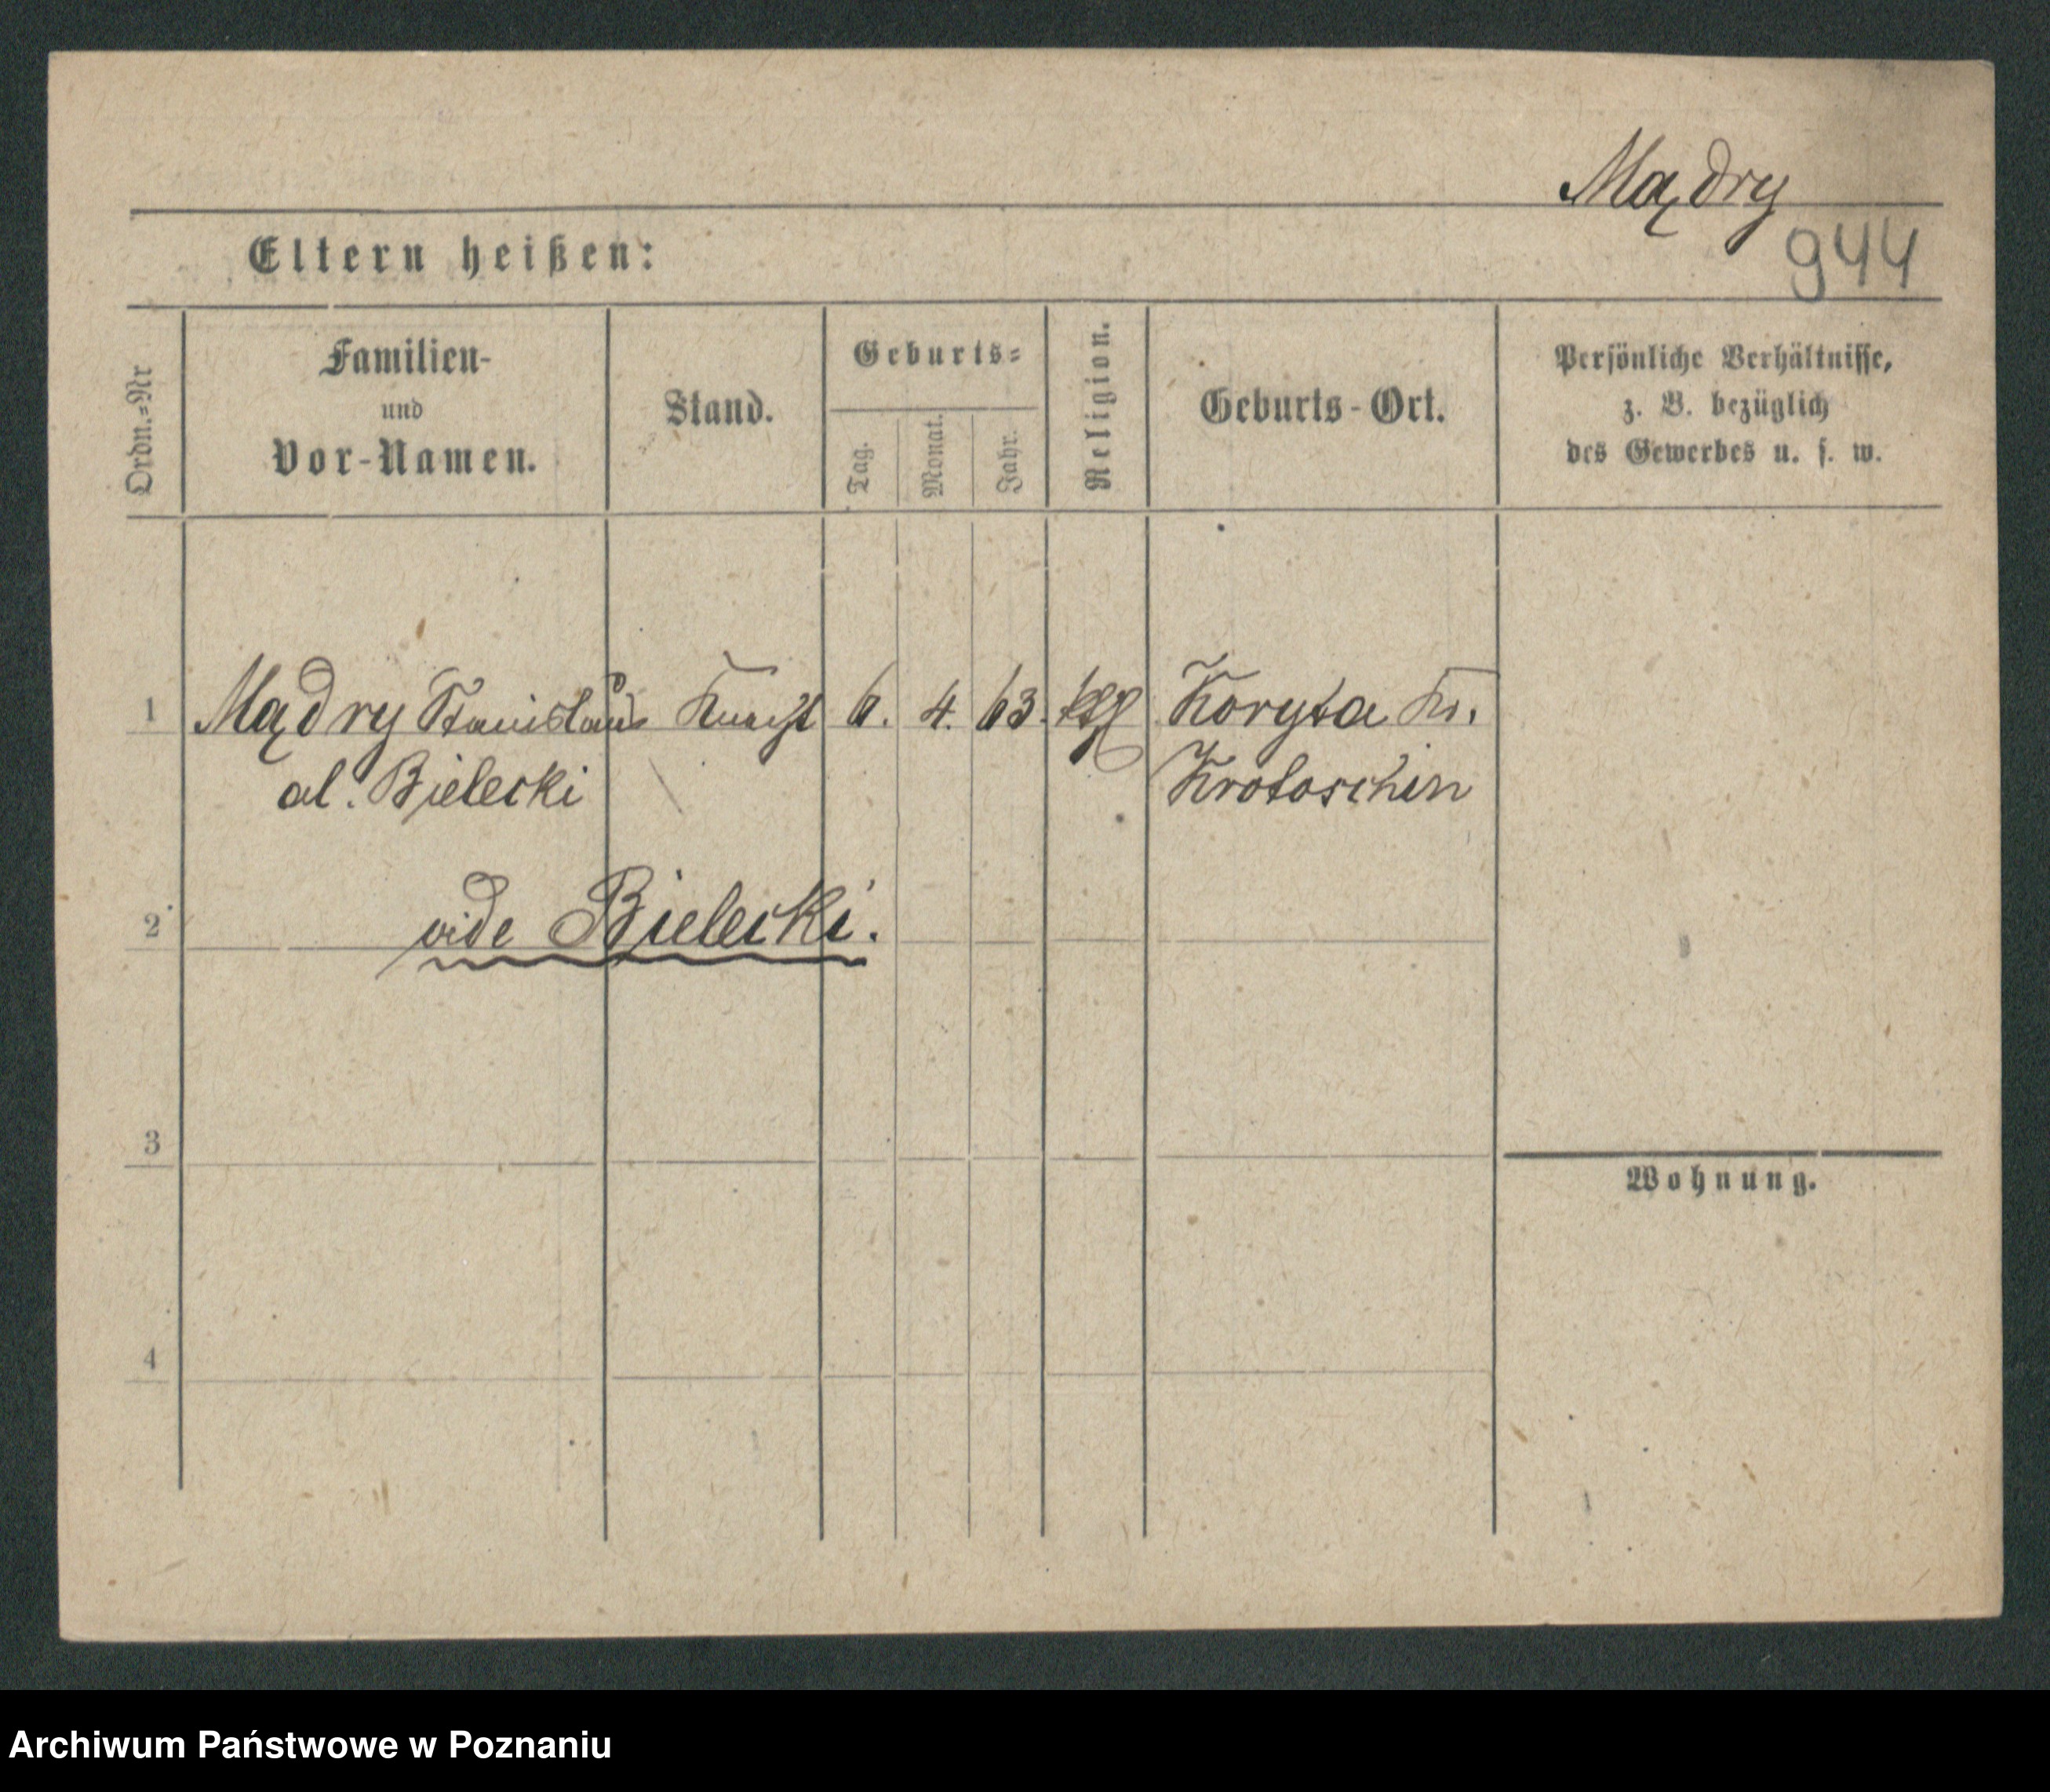 Mądry
Eltern heißen:
944
Ordn.=Nr
Familien-
und
Vor-Namen.
Stand.
Geburts=
Tag.
Monat.
Jahr.
Religion.
Geburts-Ort.
Persönliche Verhältnisse,
z. B. bezüglich
des Gewerbes u. s. w.
1 Mądry Stanislaus Knecht 6. 4. 63. kth Koryta Kr.
al. Bielecki Krotoschin
2 vide Bielecki.
3
Wohnung.
4
Archiwum Państwowe w Poznaniu